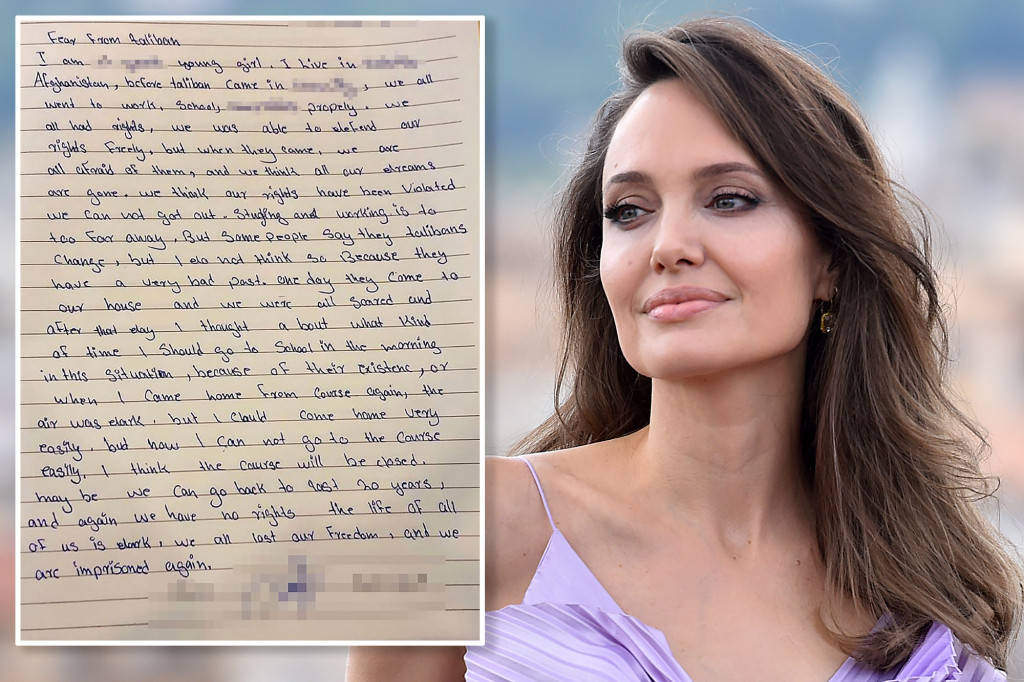 Fear From taliban
I am young girl. I live in
Afghanistan, before taliban came in , we all
went to work, School, propely. we
all had rights, we was able to defend our
rights Freely, but when they came, we are
all afraid of them, and we think all our dreams
are gone. we think our rights have been Violated
we can not got out. Studing and working is to
too far away. But Some people say they talibans
Change, but I do not think so Because they
have a very bad past. one day they come to
our house and we were all Scared and
after that day I thought a bout what kind
of time I Should go to School in the morning
in this Situation, because of their existenc, or
when I Came home From Course again, the
air was dark. but I Could come home very
easily. but now I can not go to the Course
easily. I think the Course will be closed.
may be we can go back to last 20 years,
and again we have no rights the life of all
of us is dark, we all lost our Freedom, and we
are imprisoned again.